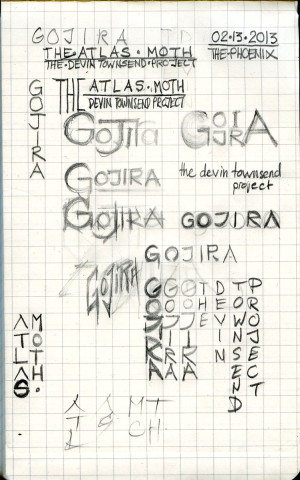 GOJIRA TD
02·13·2013
THE·ATLAS·MOTH
THE·PHOENIX
THE·DEVIN TOWNSEND·PROJECT
THE ATLAS·MOTH
DEVIN TOWNSEND PROJECT
GOJIRA
GOJIRA
GOJIRA
GOJIRA
the devin townsend
project
GOJIRA
GOJIRA
GOJIRA
GOJIRA
GOJIRA
GOJIRA
GOJIRA
THE
DEVIN
TOWNSEND
PROJECT
ATLAS
MOTH·
ATL
AS
MT
CH